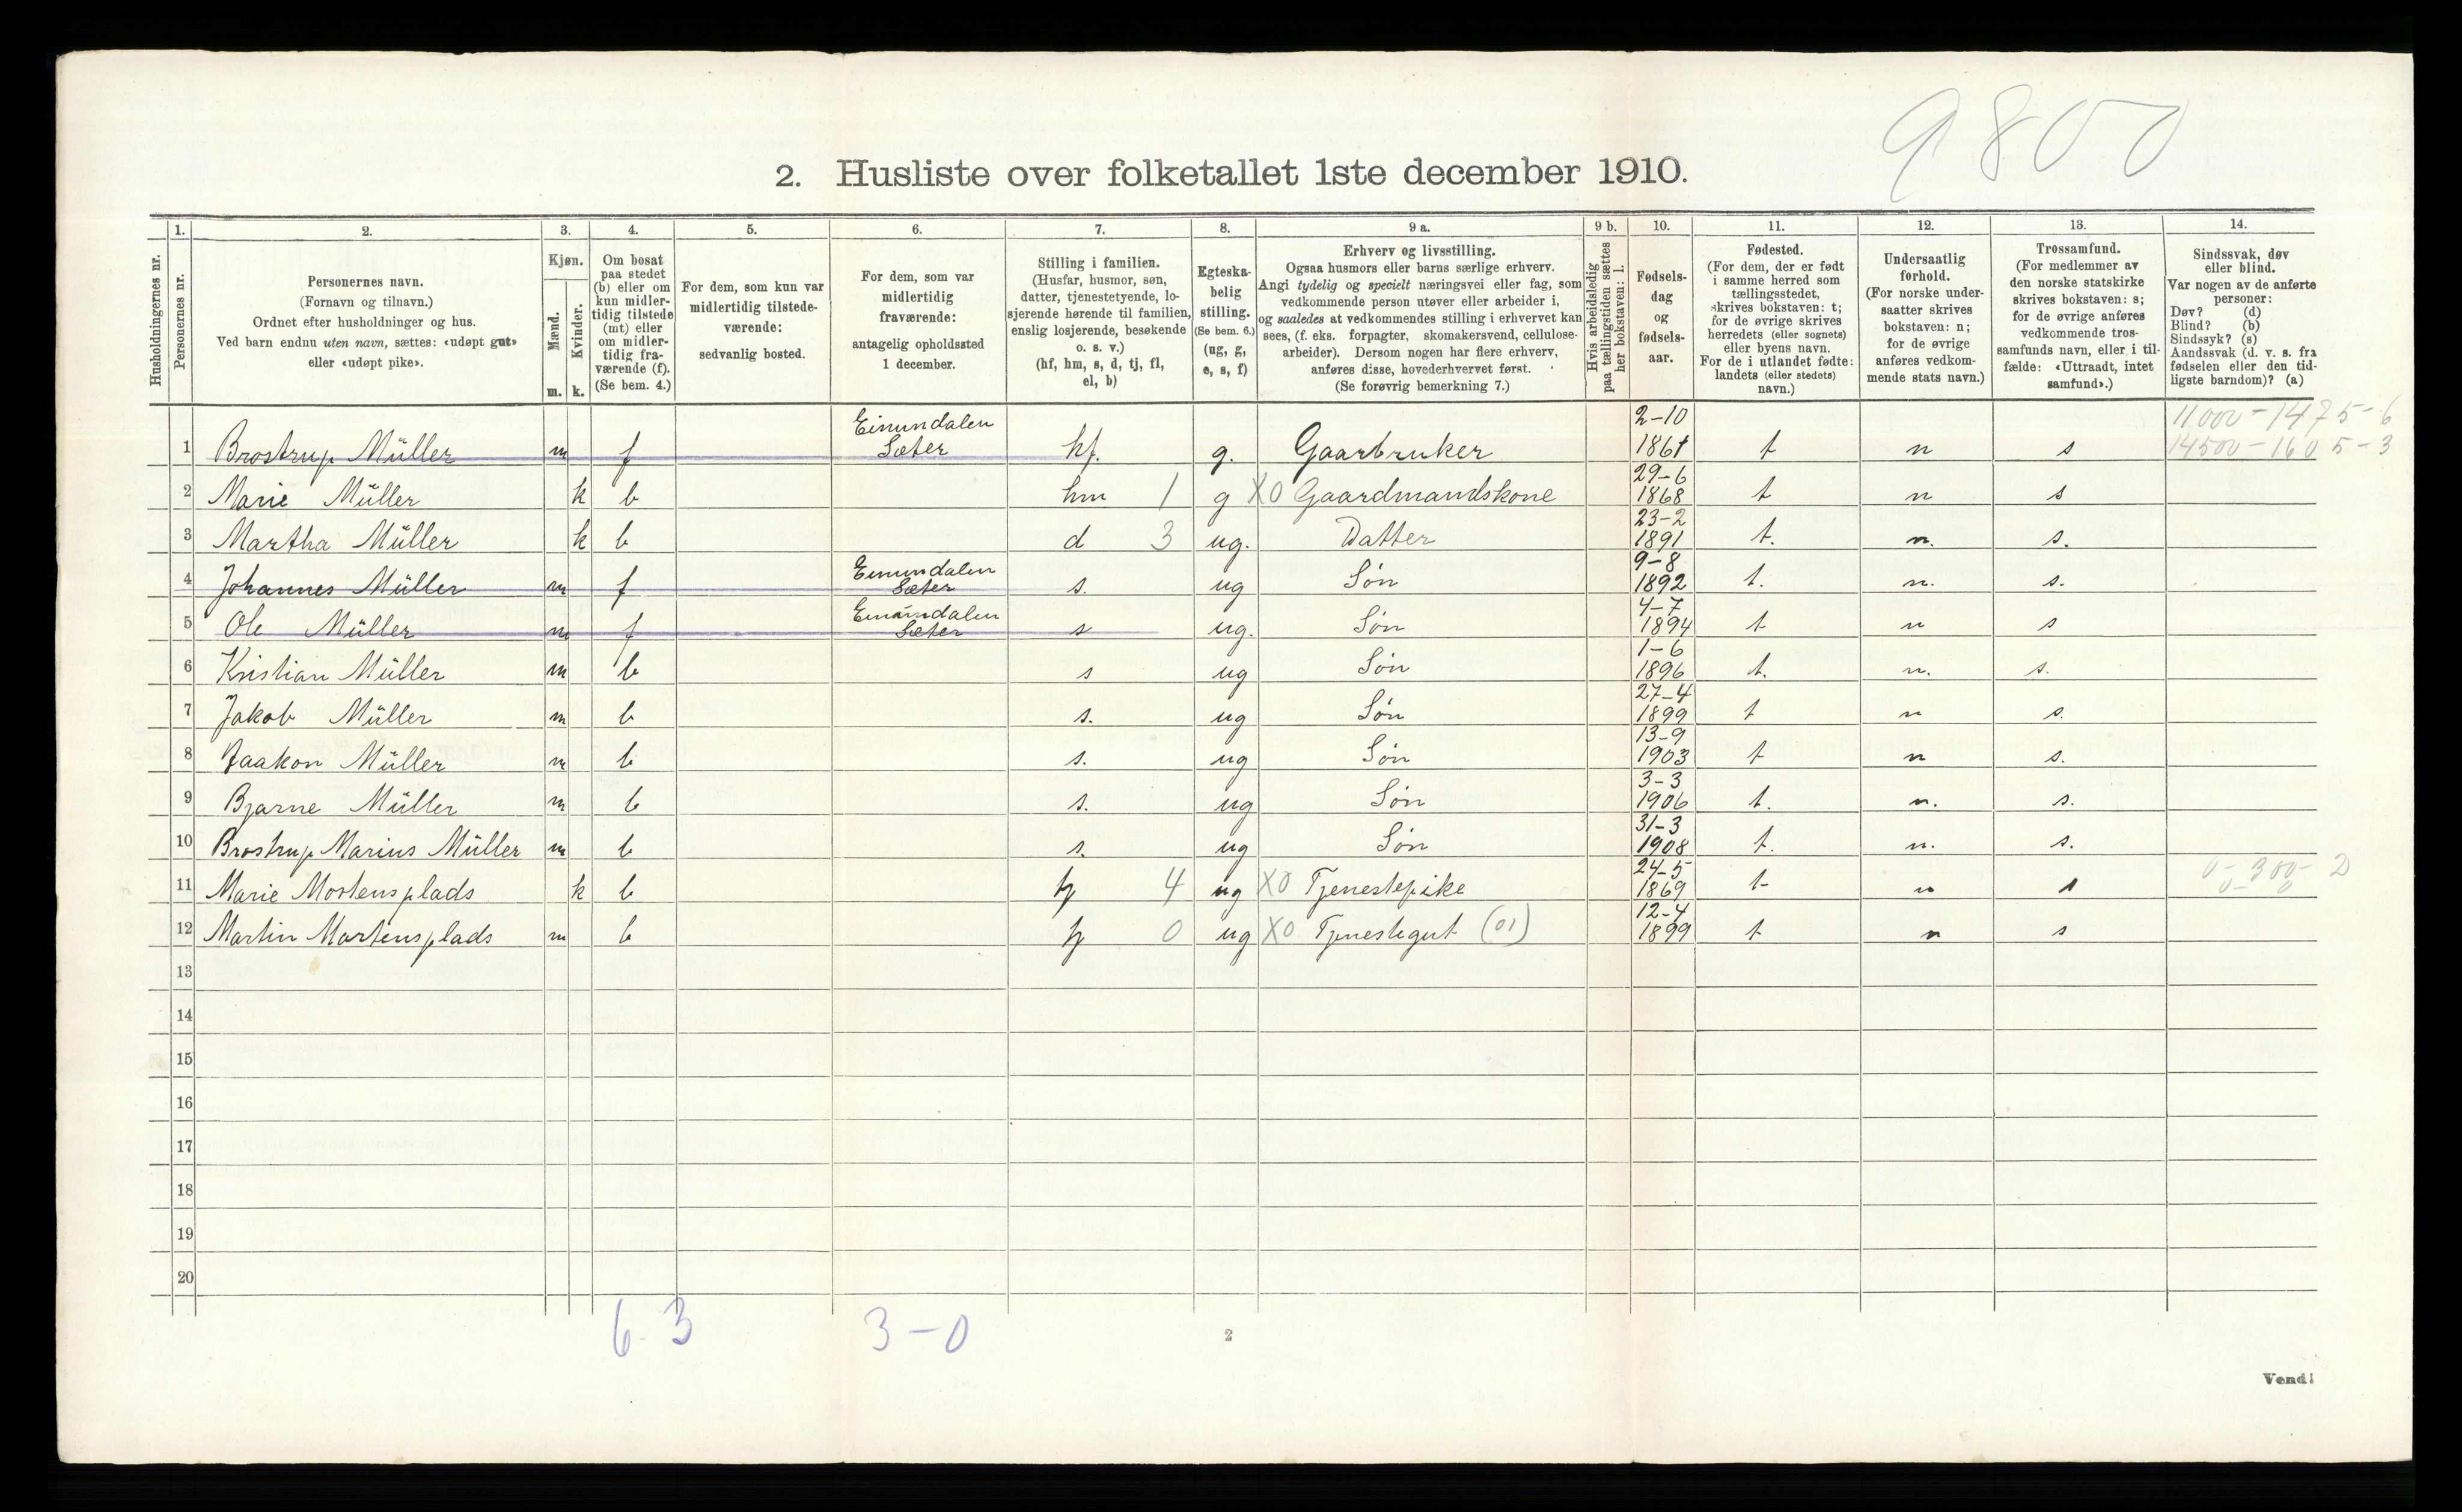 9800
2. Husliste over folketallet 1ste december 1910.
Husholdningernes nr.
1. Personernes nr.
2. Personernes navn.
(Fornavn og tilnavn.)
Ordnet efter husholdninger og hus.
Ved barn endnu uten navn, sættes: «udøpt gut»
eller «udøpt pike».
3. Kjøn.
Mænd. m.
Kvinder. k.
4. Om bosat
paa stedet
(b) eller om
kun midler-
tidig tilstede
(mt) eller
om midler-
tidig fra-
værende (f).
(Se bem. 4.)
5. For dem, som kun var
midlertidig tilstede-
værende:
sedvanlig bosted.
6. For dem, som var
midlertidig
fraværende:
antagelig opholdssted
1 december.
7. Stilling i familien.
(Husfar, husmor, søn,
datter, tjenestetyende, lo-
sjerende hørende til familien,
enslig losjerende, besøkende
o. s. v.)
(hf, hm, s, d, tj, fl,
el, b)
8. Egteska-
belig
stilling.
(Se bem. 6.)
(ug, g,
e, s, f)
9 a. Erhverv og livsstilling.
Ogsaa husmors eller barns særlige erhverv.
Angi tydelig og specielt næringsvei eller fag, som
vedkommende person utøver eller arbeider i,
og saaledes at vedkommendes stilling i erhvervet kan
sees, (f. eks. forpagter, skomakersvend, cellulose-
arbeider). Dersom nogen har flere erhverv,
anføres disse, hovederhvervet først.
(Se forøvrig bemerkning 7.)
9 b. Hvis arbeidsledig
paa tællingstiden sættes
her bokstaven: l.
10. Fødsels-
dag
og
fødsels-
aar.
11. Fødested.
(For dem, der er født
i samme herred som
tællingsstedet,
skrives bokstaven: t;
for de øvrige skrives
herredets (eller sognets)
eller byens navn.
For de i utlandet fødte:
landets (eller stedets)
navn.)
12. Undersaatlig
forhold.
(For norske under-
saatter skrives
bokstaven: n;
for de øvrige
anføres vedkom-
mende stats navn.)
13. Trossamfund.
(For medlemmer av
den norske statskirke
skrives bokstaven: s;
for de øvrige anføres
vedkommende tros-
samfunds navn, eller i til-
fælde: «Uttraadt, intet
samfund».)
14. Sindssvak, døv
eller blind.
Var nogen av de anførte
personer:
Døv? (d)
Blind? (b)
Sindssyk? (s)
Aandssvak (d. v. s. fra
fødselen eller den tid-
ligste barndom)? (a)
11000-1475-6
1 Brostrup Müller m f Einundalen Sæter hf. g. Gaarbruker 2-10 1861 t n s 14500-1605-3
2 Marie Müller k b hm 1 g X0 Gaardmandskone 29-6 1868 t n s
3 Martha Müller k b d 3 ug. Datter 23-2 1891 t. n. s.
4 Johannes Müller m f Einundalen Sæter s. ug Søn 9-8 1892 t. n. s.
5 Ole Müller m f Einundalen Sæter s ug. Søn 4-7 1894 t n s
6 Kristian Müller m b s ug Søn 1-6 1896 t. n. s.
7 Jakob Müller m b s. ug Søn 27-4 1899 t n s.
8 Haakon Müller m b s. ug Søn 13-9 1903 t n s.
9 Bjarne Müller m b s. ug Søn 3-3 1906 t. n. s.
10 Brostrup Marius Müller m b s. ug Søn 31-3 1908 t. n. s.
11 Marie Mortensplads k b tj 4 ug X0 Tjenestepike 24-5 1869 t n s
12 Martin Mortensplads m b tj 0 ug X0 Tjenestegut (01) 12-4 1899 t n s
13
14
15
16
17
18
19
20
6-3 3-0
2
Vend!